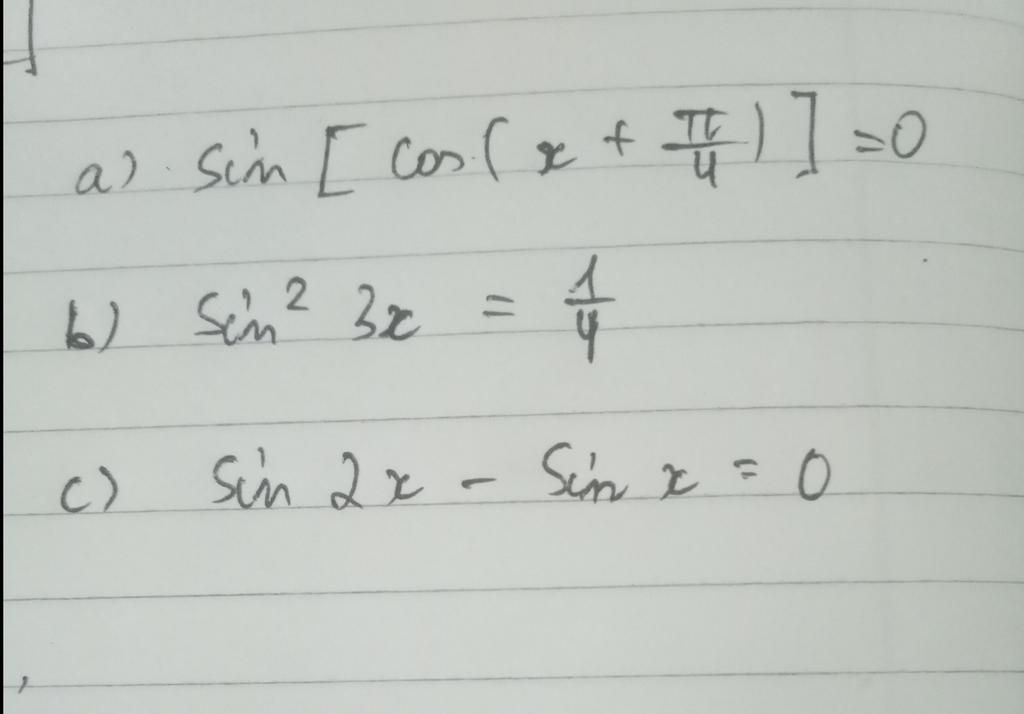 a) sin [ cos ( x + π/4 ) ] = 0
b) sin² 3x = 1/4
c) sin 2x - sin x = 0